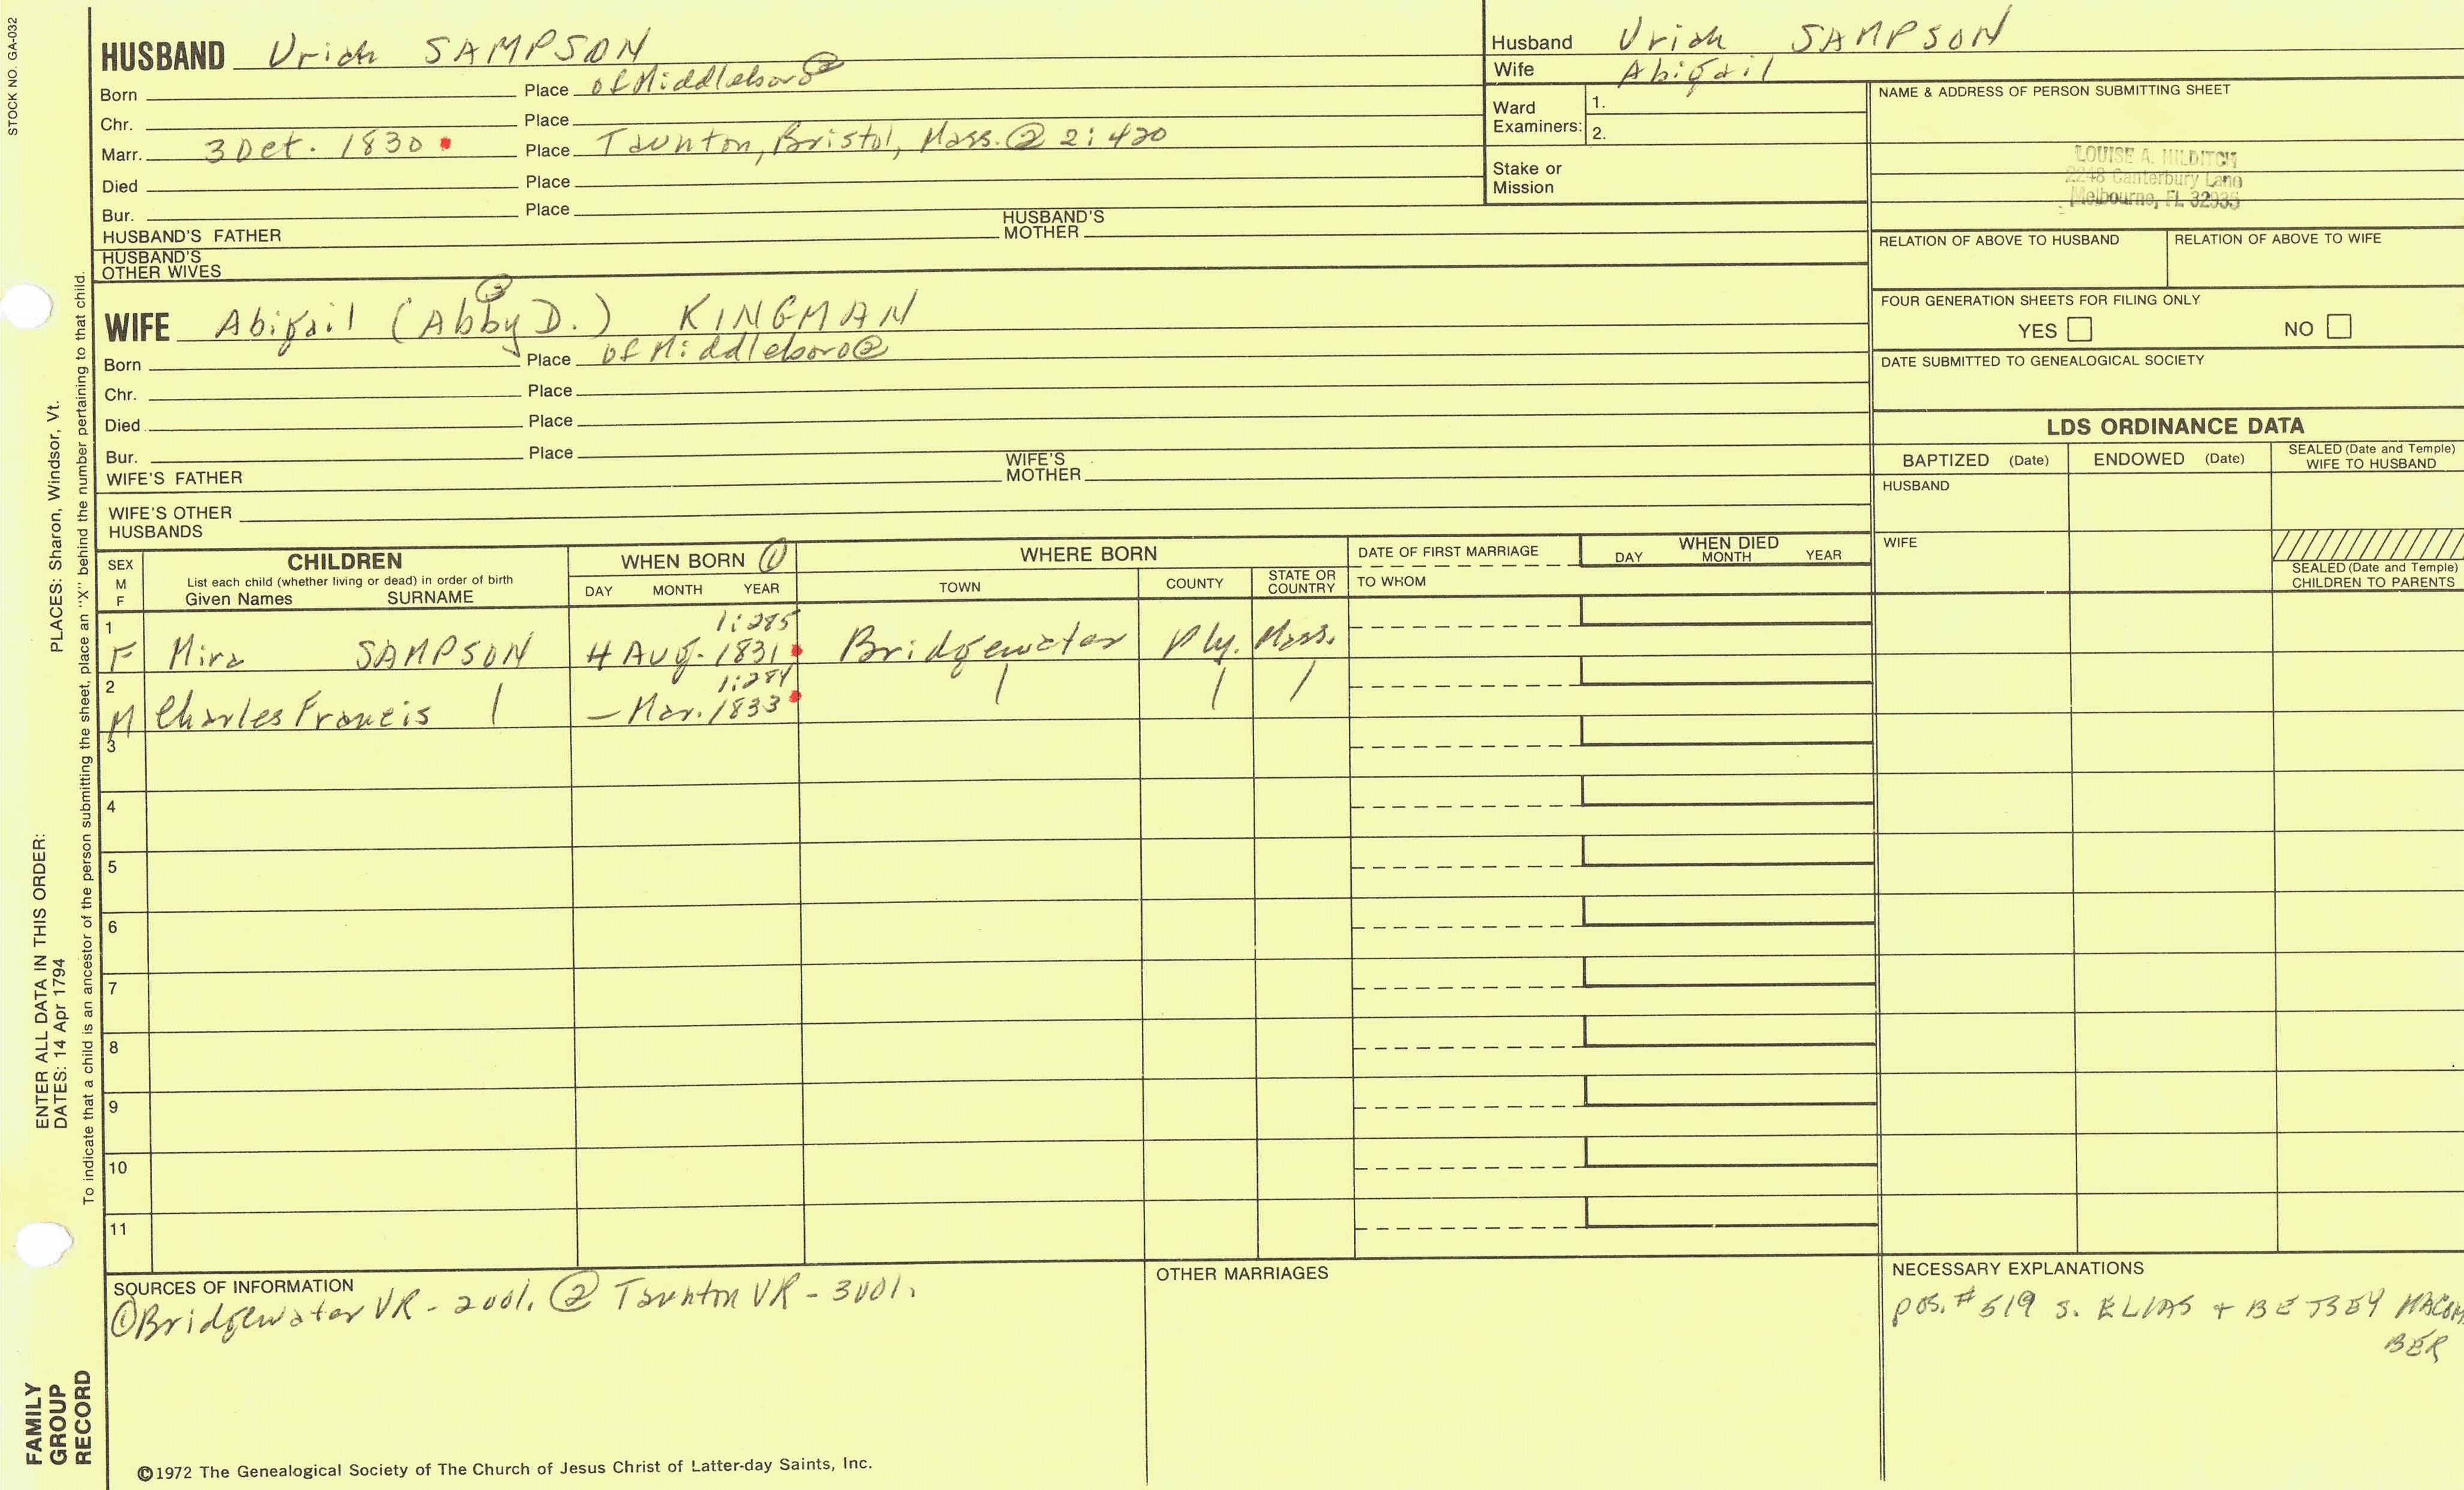 STOCK NO. GA-032
HUSBAND Uriah SAMPSON
Born Place of Middleboro ②
Chr. Place
Marr. 3 Oct. 1830 Place Taunton, Bristol, Mass. ② 2:420
Died Place
Bur. Place
HUSBAND'S FATHER HUSBAND'S MOTHER
HUSBAND'S OTHER WIVES
Husband Uriah SAMPSON
Wife Abigail
Ward Examiners: 1.
2.
Stake or Mission
NAME & ADDRESS OF PERSON SUBMITTING SHEET
LOUISE A. HILDITCH
2248 Canterbury Lane
Melbourne, FL 32935
RELATION OF ABOVE TO HUSBAND RELATION OF ABOVE TO WIFE
FOUR GENERATION SHEETS FOR FILING ONLY
YES NO
DATE SUBMITTED TO GENEALOGICAL SOCIETY
③
WIFE Abigail (Abby D.) KINGMAN
Born Place of Middleboro ②
Chr. Place
Died Place
Bur. Place
WIFE'S FATHER WIFE'S MOTHER
WIFE'S OTHER HUSBANDS
LDS ORDINANCE DATA
BAPTIZED (Date) ENDOWED (Date) SEALED (Date and Temple) WIFE TO HUSBAND
HUSBAND
WIFE
SEALED (Date and Temple) CHILDREN TO PARENTS
SEX M F CHILDREN WHEN BORN ① WHERE BORN DATE OF FIRST MARRIAGE WHEN DIED
List each child (whether living or dead) in order of birth
Given Names SURNAME DAY MONTH YEAR TOWN COUNTY STATE OR COUNTRY TO WHOM DAY MONTH YEAR
1 1:285
F Mira SAMPSON 4 Aug. 1831 Bridgewater Ply. Mass.
2 1:284
M Charles Francis | — Mar. 1833 | | |
3
4
5
6
7
8
9
10
11
SOURCES OF INFORMATION
① Bridgewater VR - 2 vol. ② Taunton VR - 3 vol.
OTHER MARRIAGES
NECESSARY EXPLANATIONS
pos. # 519 s. ELIAS + BETSEY MACOM
BER
©1972 The Genealogical Society of The Church of Jesus Christ of Latter-day Saints, Inc.
FAMILY GROUP RECORD
ENTER ALL DATA IN THIS ORDER:
DATES: 14 Apr 1794
PLACES: Sharon, Windsor, Vt.
To indicate that a child is an ancestor of the person submitting the sheet, place an "X" behind the number pertaining to that child.